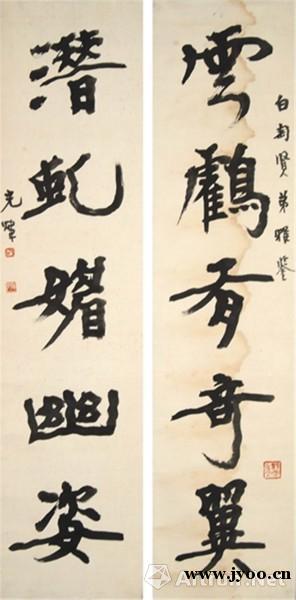 白匋賢弟雅鑒
雲鶴有奇翼
潛虬媚幽姿
光煒
www.jyoo.cn